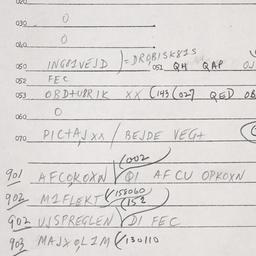 030 0
040 0
050 INGO1VEJD ) = DROBISK81S
051 QH QAP
052 FEC
053 OBD+UBRIK XX (143(027 QED OB
060 0
070 PIC+AJXX / BEJDE VEG+
(002
901 AFCOKOXN QI AFCU OPKOXN
902 M1FLEKT (158060
(152
902 UJSPREGLEN DI FEC
903 MAJXQL1M (130110